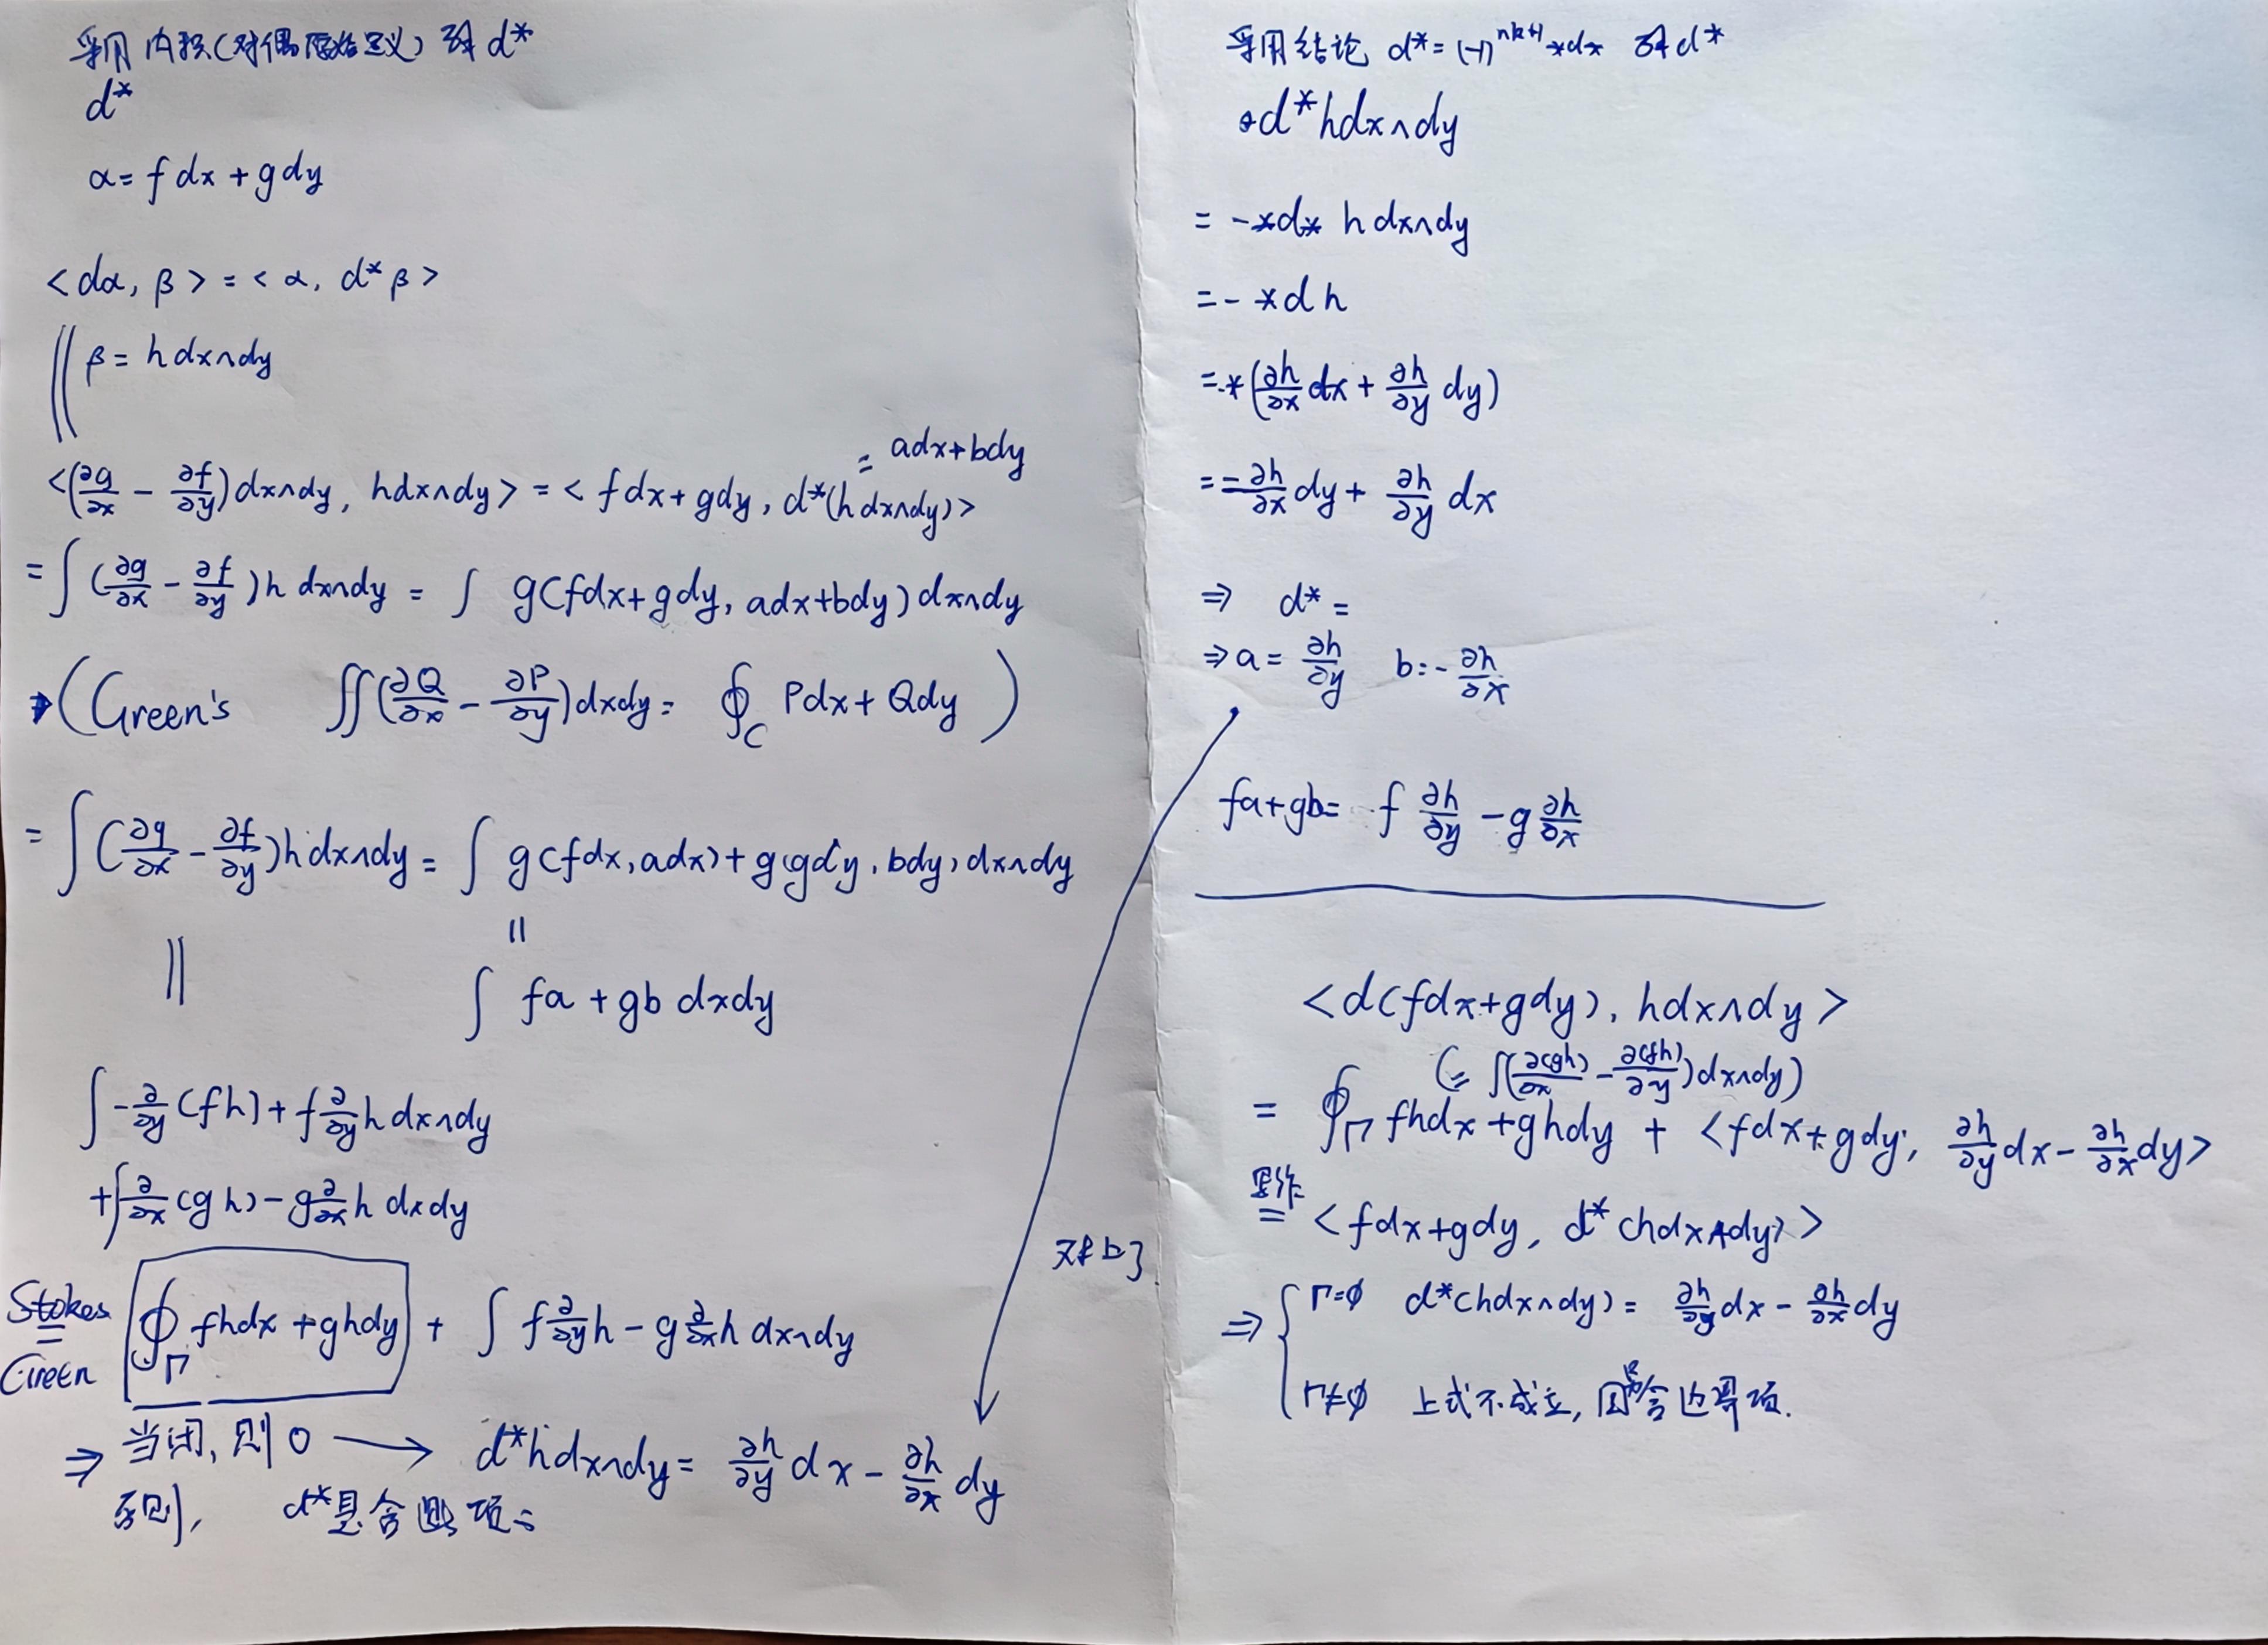 采用内积(对偶原始定义) 求 d*
d*
α= f dx + g dy
<dα, β> = <α, d*β>
|| β = h dx∧dy
= adx+bdy
<(∂g/∂x − ∂f/∂y)dx∧dy, hdx∧dy> = <fdx+gdy, d*(hdx∧dy)>
= ∫(∂g/∂x − ∂f/∂y)h dx∧dy = ∫ g(fdx+gdy, adx+bdy)dx∧dy
(Green's ∬(∂Q/∂x − ∂P/∂y)dxdy = ∮_C Pdx+Qdy )
= ∫(∂g/∂x − ∂f/∂y)h dx∧dy = ∫ g(fdx, adx)+g(gdy, bdy)dx∧dy
|| ||
∫ fa + gb dxdy
∫ −∂/∂y(fh)+f ∂/∂y h dx∧dy
+∫ ∂/∂x(gh)−g ∂/∂x h dxdy
Stokes = Green ∮_Γ fhdx+ghdy + ∫ f ∂/∂y h − g ∂/∂x h dx∧dy
⇒ 当闭, 则 0 ⟶ d*hdx∧dy = ∂h/∂y dx − ∂h/∂x dy
否则, d*是含此项
采用结论 d* = (−1)^{nk+1} *d* 求 d*
d*hdx∧dy
= −*d* h dx∧dy
= − *dh
= −*(∂h/∂x dx + ∂h/∂y dy)
= −∂h/∂x dy + ∂h/∂y dx
⇒ d* =
⇒ a = ∂h/∂y b = −∂h/∂x
fa+gb = f ∂h/∂y − g ∂h/∂x
对上了
<d(fdx+gdy), hdx∧dy>
(= ∫(∂(gh)/∂x − ∂(fh)/∂y)dx∧dy)
= ∮_Γ fhdx+ghdy + <fdx+gdy, ∂h/∂y dx − ∂h/∂x dy>
= <fdx+gdy, d*(hdx∧dy)>
⇒ { Γ=∅ d*(hdx∧dy) = ∂h/∂y dx − ∂h/∂x dy
Γ≠∅ 上式不成立, 因为含边界项.